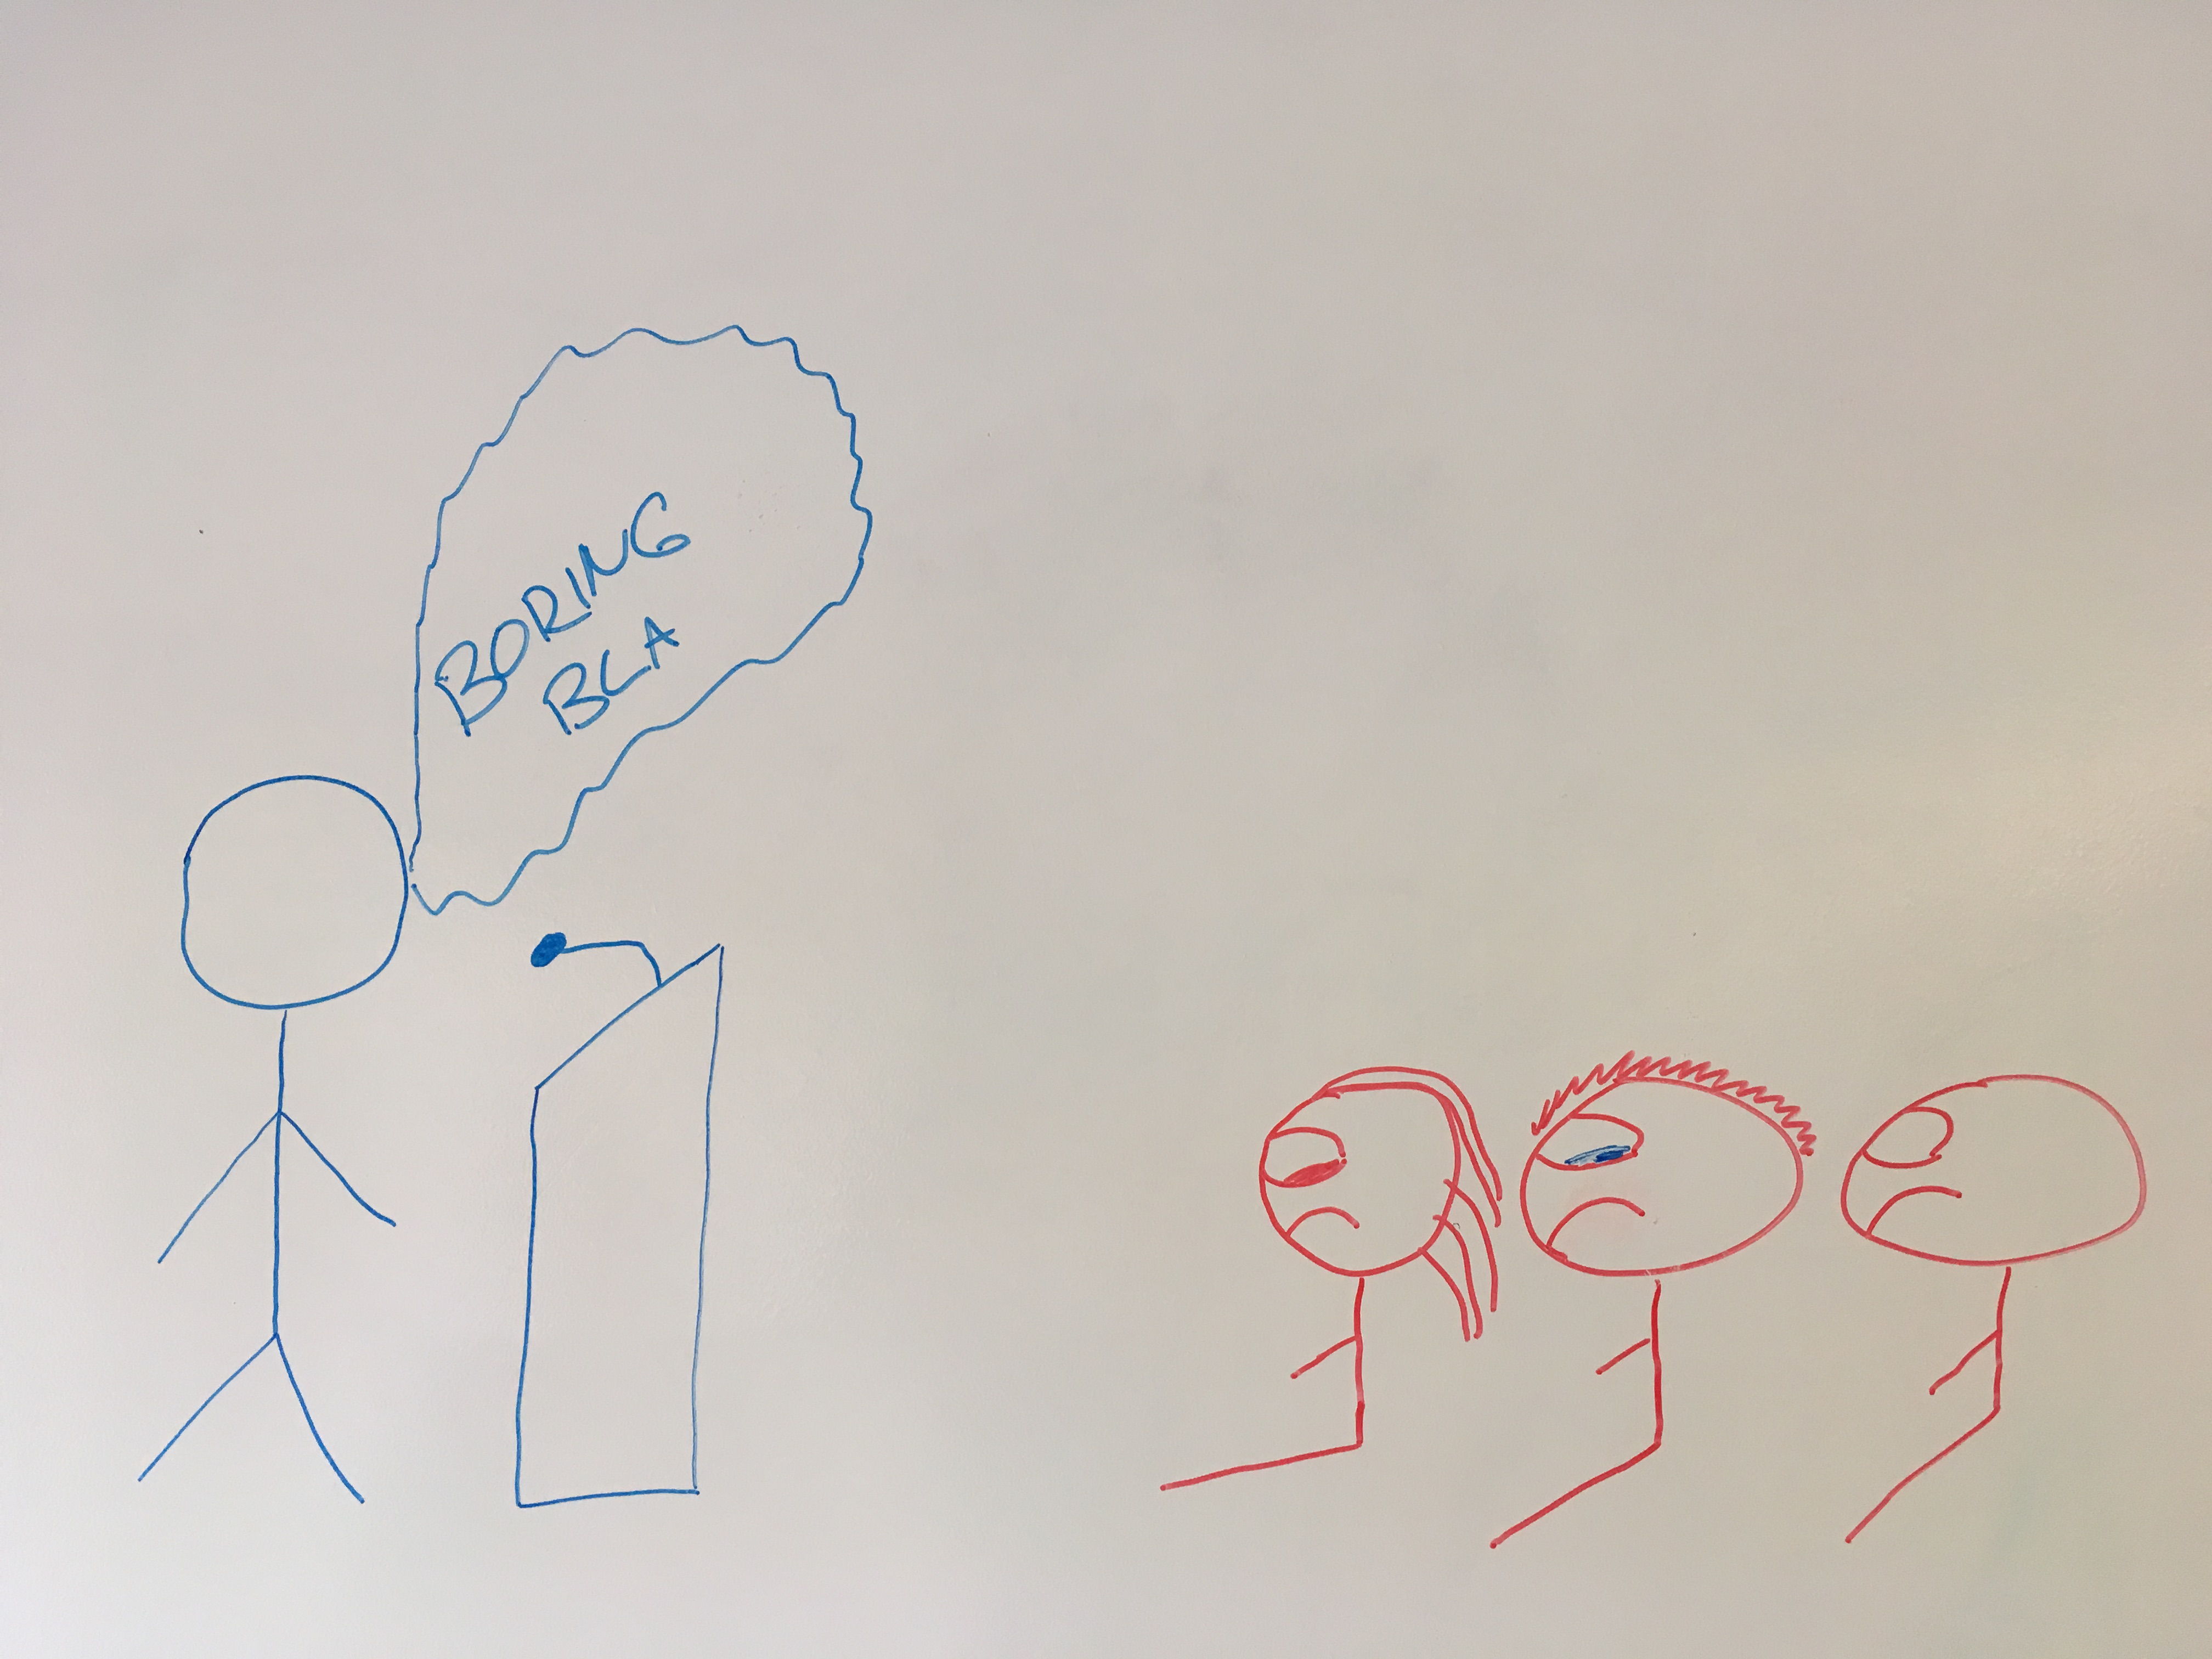 BORING
BLA